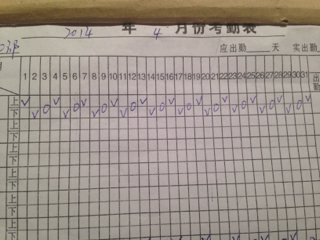 2014 年 4 月份考勤表
应出勤 天 实出勤
1 2 3 4 5 6 7 8 9 10 11 12 13 14 15 16 17 18 19 20 21 22 23 24 25 26 27 28 29 30 31 出勤
上
下
上
下
上
下
上
下
上
下
上
下